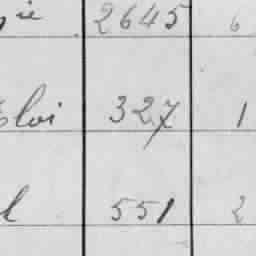 ie 2645 6
Eloi 327 1
l 551 2